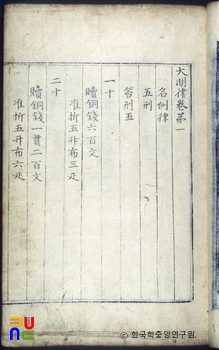 大明律卷第一
名例律
五刑
笞刑五
一十
贖銅錢六百文
准折五升布三疋
二十
贖銅錢一貫二百文
准折五升布六疋
ⓒ 한국학중앙연구원